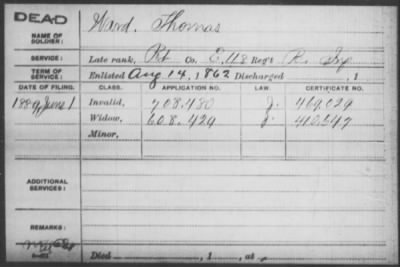 DEAD
NAME OF SOLDIER: Ward, Thomas
SERVICE: Late rank, Pvt Co. E, 118 Reg't
TERM OF SERVICE: Enlisted Aug 14, 1862 Discharged , 1
DATE OF FILING. CLASS. APPLICATION NO. LAW. CERTIFICATE NO.
1889, June 1 Invalid, 708.480 J. 469.029
Widow, 608.429 J. 410.647
Minor,
ADDITIONAL SERVICES:
REMARKS:
Died , 1 , at